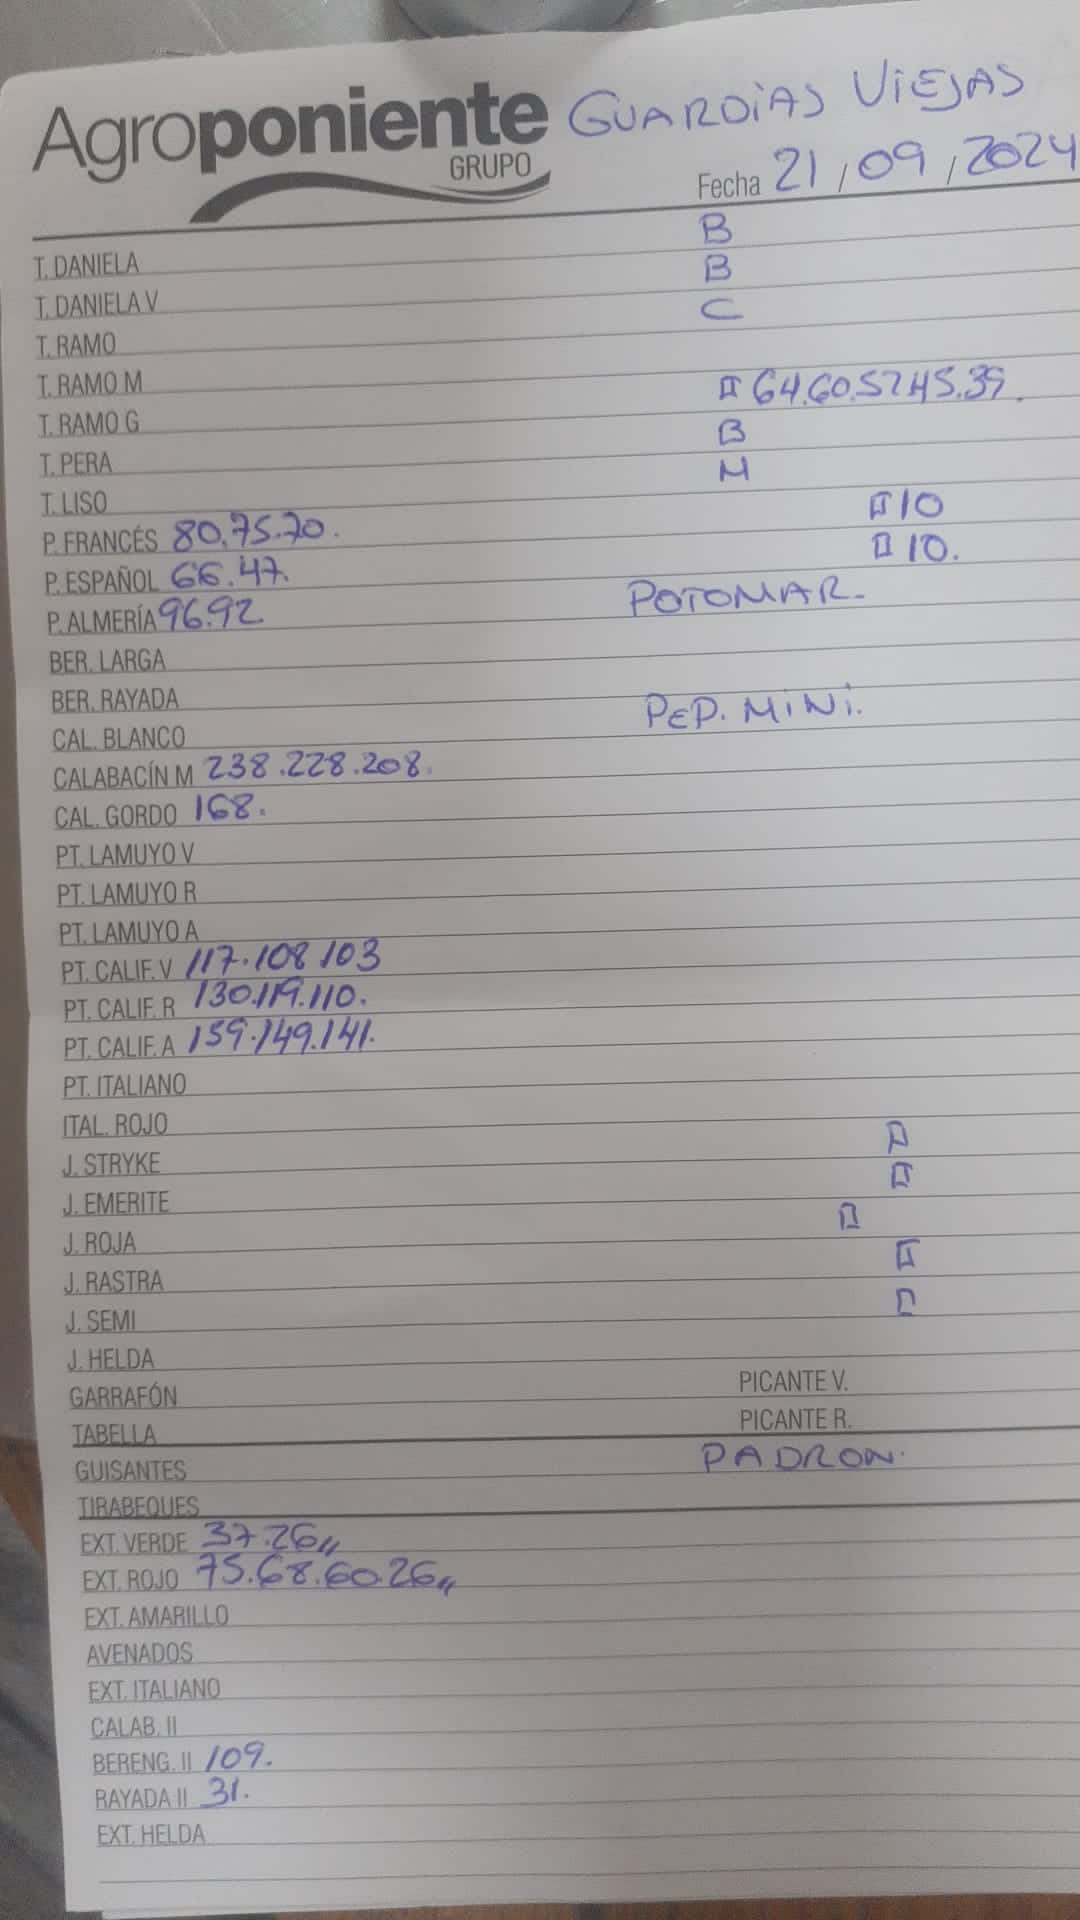 Agroponiente GUARDIAS VIEJAS
GRUPO
Fecha 21/09/2024
B
T. DANIELA B
T. DANIELA V C
T. RAMO
T. RAMO M 64.60.57.45.39.
T. RAMO G B
T. PERA M
T. LISO 10
P. FRANCÉS 80.75.70. 10.
P. ESPAÑOL 66.47.
P. ALMERÍA 96.92. POTOMAR.
BER. LARGA
BER. RAYADA
CAL. BLANCO PEP. MINI.
CALABACÍN M 238.228.208.
CAL. GORDO 168.
PT. LAMUYO V
PT. LAMUYO R
PT. LAMUYO A
PT. CALIF. V 117.108.103
PT. CALIF. R 130.119.110.
PT. CALIF. A 159.149.141.
PT. ITALIANO
ITAL. ROJO
J. STRYKE
J. EMERITE
J. ROJA
J. RASTRA
J. SEMI
J. HELDA
GARRAFÓN PICANTE V.
TABELLA PICANTE R.
GUISANTES PADRON.
TIRABEQUES
EXT. VERDE 37.26,,
EXT. ROJO 75.68.60.26,,
EXT. AMARILLO
AVENADOS
EXT. ITALIANO
CALAB. II
BERENG. II 109.
RAYADA II 31.
EXT. HELDA